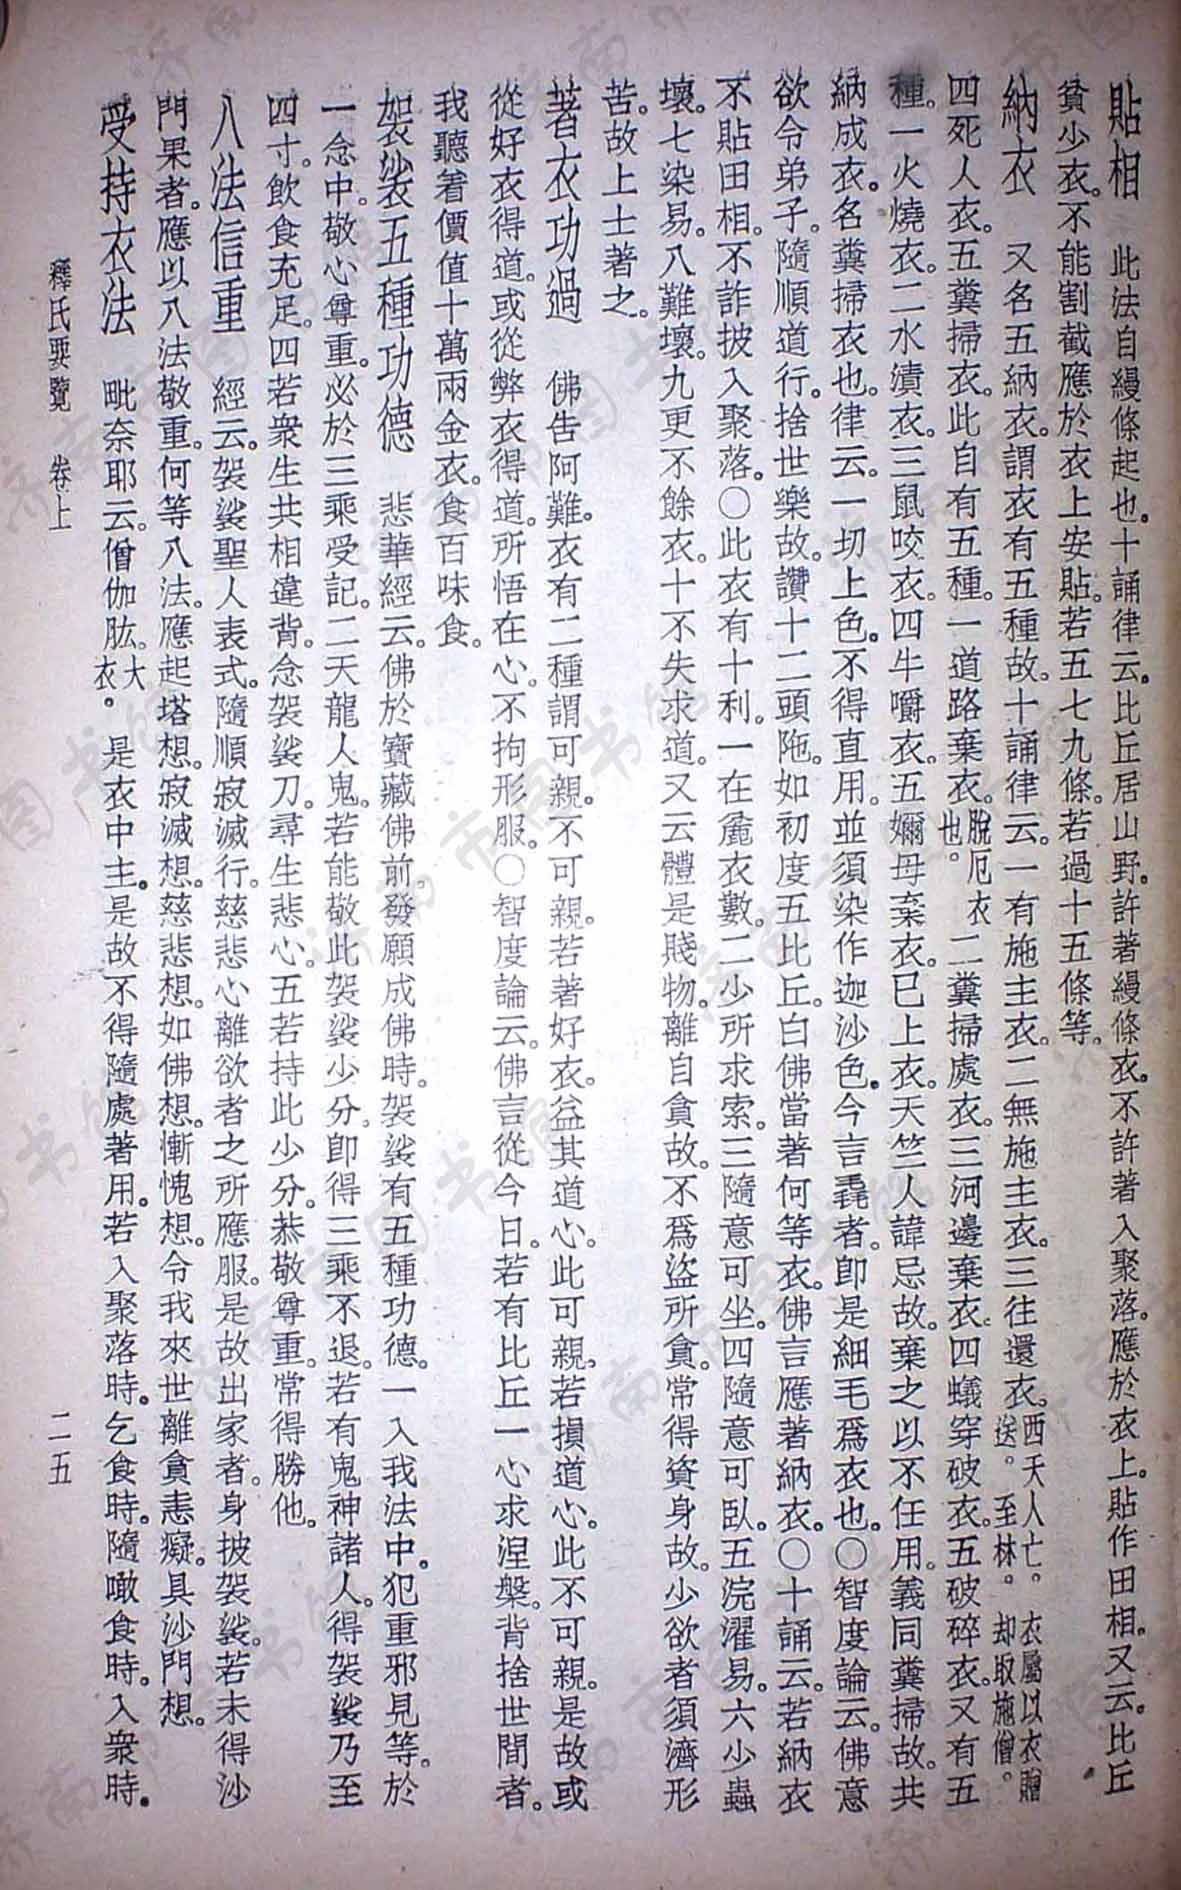 貼相　此法自縵條起也。十誦律云。比丘居山野。許著縵條衣。不許著入聚落。應於衣上。貼作田相。又云。比丘
貧少衣。不能割截應於衣上安貼。若五七九條。若過十五條等。
納衣　又名五納衣。謂衣有五種故。十誦律云。一有施主衣。二無施主衣。三往還衣。西天人亡。衣屬以衣贈送。至林。却取施僧。
四死人衣。五糞掃衣。此自有五種。一道路棄衣。脫厄衣也。二糞掃處衣。三河邊棄衣。四蟻穿破衣。五破碎衣。又有五
種。一火燒衣。二水漬衣。三鼠咬衣。四牛嚼衣。五嬭母棄衣。已上衣。天竺人諱忌故。棄之以不任用。義同糞掃故。共
納成衣。名糞掃衣也。律云。一切上色。不得直用。並須染作迦沙色。今言毳者。卽是細毛爲衣也。〇智度論云。佛意
欲令弟子。隨順道行。捨世樂故。讚十二頭陁。如初度五比丘。白佛當著何等衣。佛言應著納衣。〇十誦云。若納衣
不貼田相。不詐披入聚落。〇此衣有十利。一在麁衣數。二少所求索。三隨意可坐。四隨意可臥。五浣濯易。六少蟲
壞。七染易。八難壞。九更不餘衣。十不失求道。又云體是賤物。離自貪故。不爲盜所貪。常得資身故。少欲者須濟形
苦。故上士著之。
著衣功過　佛告阿難。衣有二種謂可親。不可親。若著好衣。益其道心。此可親。若損道心。此不可親。是故或
從好衣得道。或從弊衣得道。所悟在心。不拘形服。〇智度論云。佛言從今日。若有比丘一心求涅槃。背捨世間者。
我聽着價值十萬兩金衣。食百味食。
袈裟五種功德　悲華經云。佛於寶藏佛前。發願成佛時。袈裟有五種功德。一入我法中。犯重邪見等。於
一念中。敬心尊重。必於三乘受記。二天龍人鬼。若能敬此袈裟少分。卽得三乘不退。若有鬼神諸人。得袈裟乃至
四寸。飲食充足。四若衆生共相違背。念袈裟刀。尋生悲心。五若持此少分。恭敬尊重。常得勝他。
八法信重　經云。袈裟聖人表式。隨順寂滅行。慈悲心離欲者之所應服。是故出家者。身披袈裟。若未得沙
門果者。應以八法敬重。何等八法。應起塔想。寂滅想。慈悲想。如佛想。慚愧想。令我來世離貪恚癡。具沙門想。
受持衣法　毗奈耶云。僧伽胝。大衣。是衣中主。是故不得隨處著用。若入聚落時。乞食時。隨噉食時。入衆時。
釋氏要覽　卷上
二五